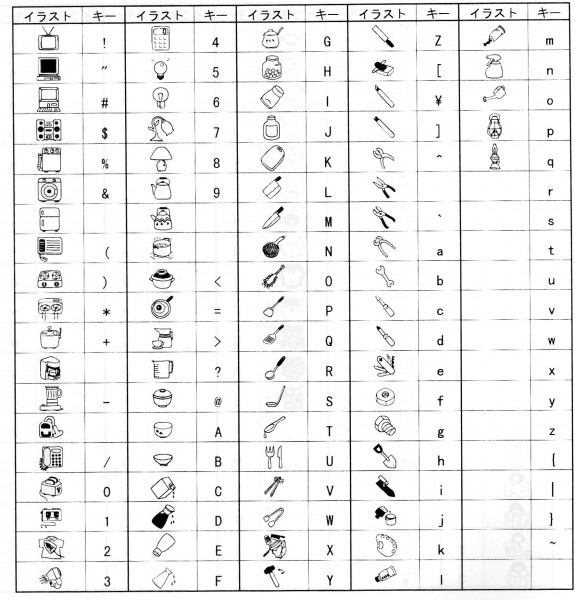 イラスト キー イラスト キー イラスト キー イラスト キー イラスト キー
! 4 G Z m
″ 5 H [ n
# 6 I ¥ o
$ 7 J ] p
% 8 K ^ q
& 9 L r
M ` s
( N a t
) < O b u
* = P c v
+ > Q d w
? R e x
- @ S f y
A T g z
/ B U h {
0 C V i |
1 D W j }
2 E X k ~
3 F Y l